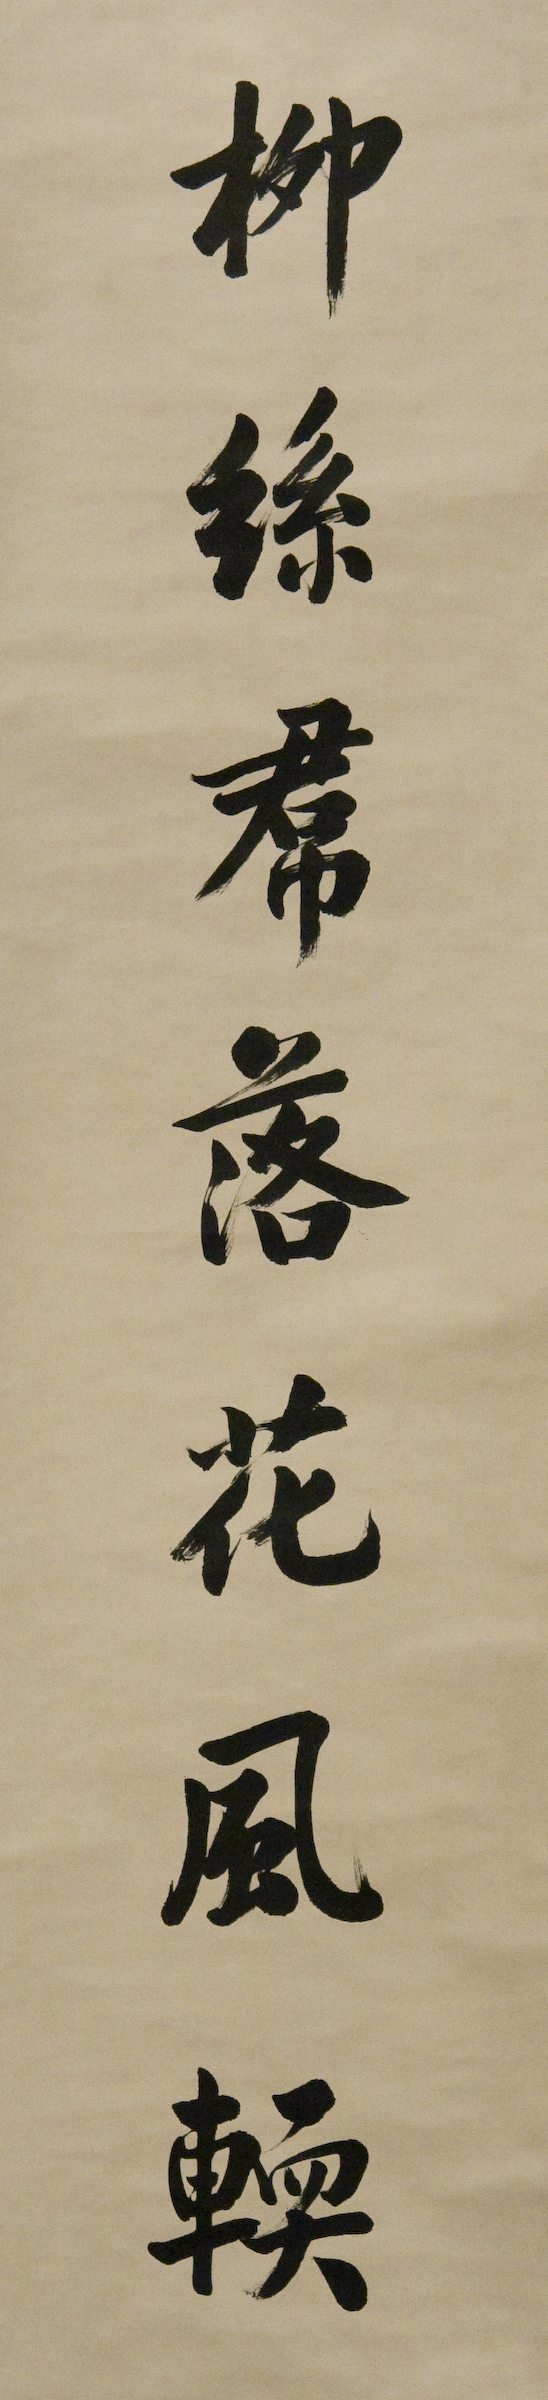 柳絲帬落花風輭